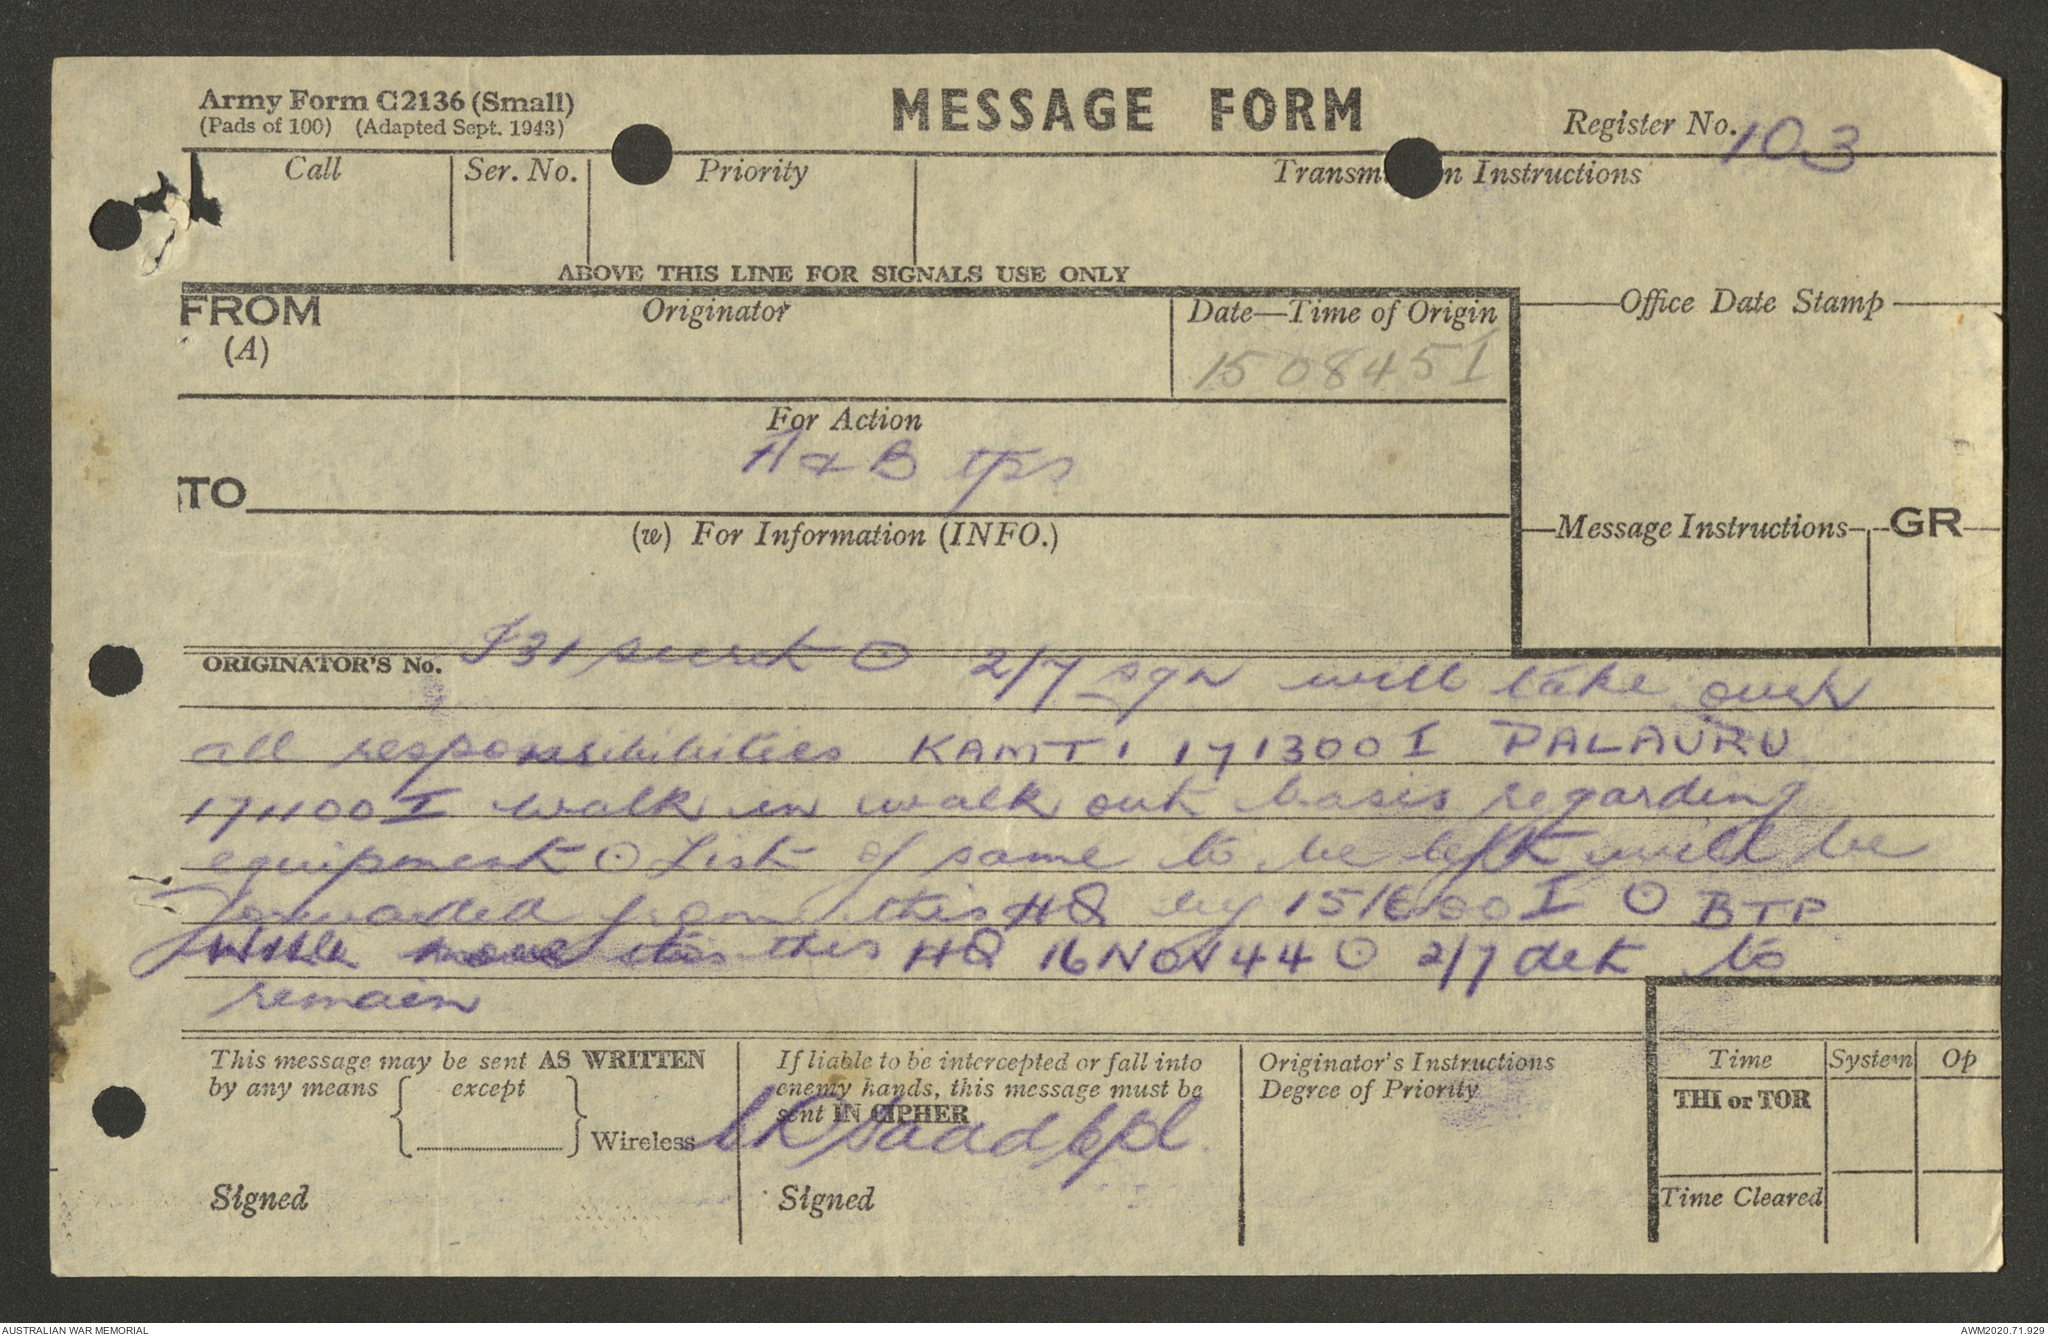 Army Form C2136 (Small)
(Pads of 100) (Adapted Sept. 1943)
MESSAGE FORM
Register No. 103
Call
Ser. No.
Priority
Transm n Instructions
ABOVE THIS LINE FOR SIGNALS USE ONLY
FROM
(A)
Originator
Date—Time of Origin
150845I
Office Date Stamp
For Action
A & B tps
TO
(w) For Information (INFO.)
Message Instructions
GR
ORIGINATOR'S No. I31 secret O 2/7 sqn will take over
all responsibilities KAMTI 171300I PALAURU
171100I walk in walk out basis regarding
equipment O List of same to be left will be
forwarded from this HQ by 151600I O B TP
will move this HQ 16 NOV 44 O 2/7 det to
remain
This message may be sent AS WRITTEN
by any means
except
Wireless
Signed
If liable to be intercepted or fall into
enemy hands, this message must be
sent IN CIPHER
Signed
Originator's Instructions
Degree of Priority
Time
System
Op
THI or TOR
Time Cleared
AUSTRALIAN WAR MEMORIAL
AWM2020.71.929